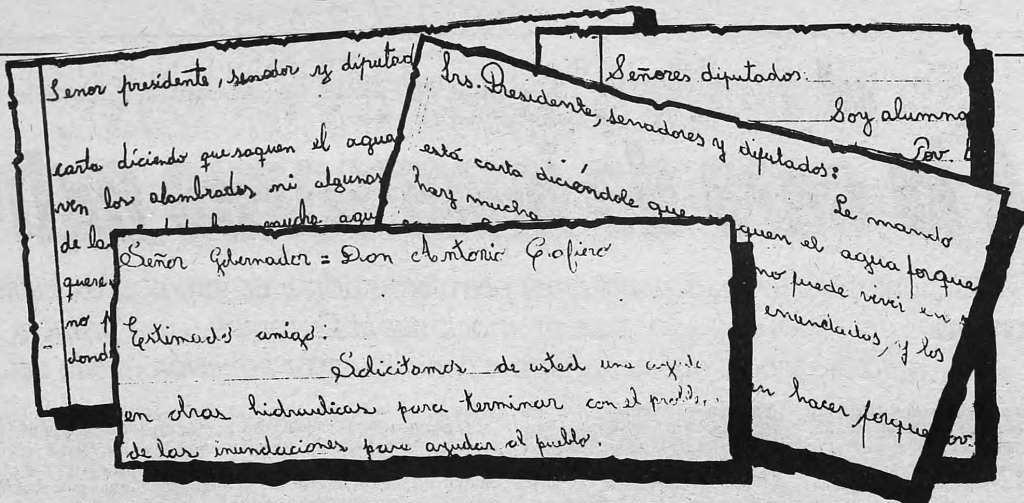 Senor presidente, senador y diputad
carta diciendo que saquen el agua
ven los alambrados ni algunos
de la mucha agu
quere
no p
dond
Señores diputados:
Soy alumna
Pov.
Srs. Presidente, senadores y diputados:
Le mando
está carta diciéndole que quen el agua porque
hay mucha no puede vivir en
enundados, y los
en hacer porque
Señor Gobernador = Don Antonio Cafiero
Estimado amigo:
Solicitamos de usted una
en obras hidraulicas para terminar con el proble
de las inundaciones para ayudar al pueblo.